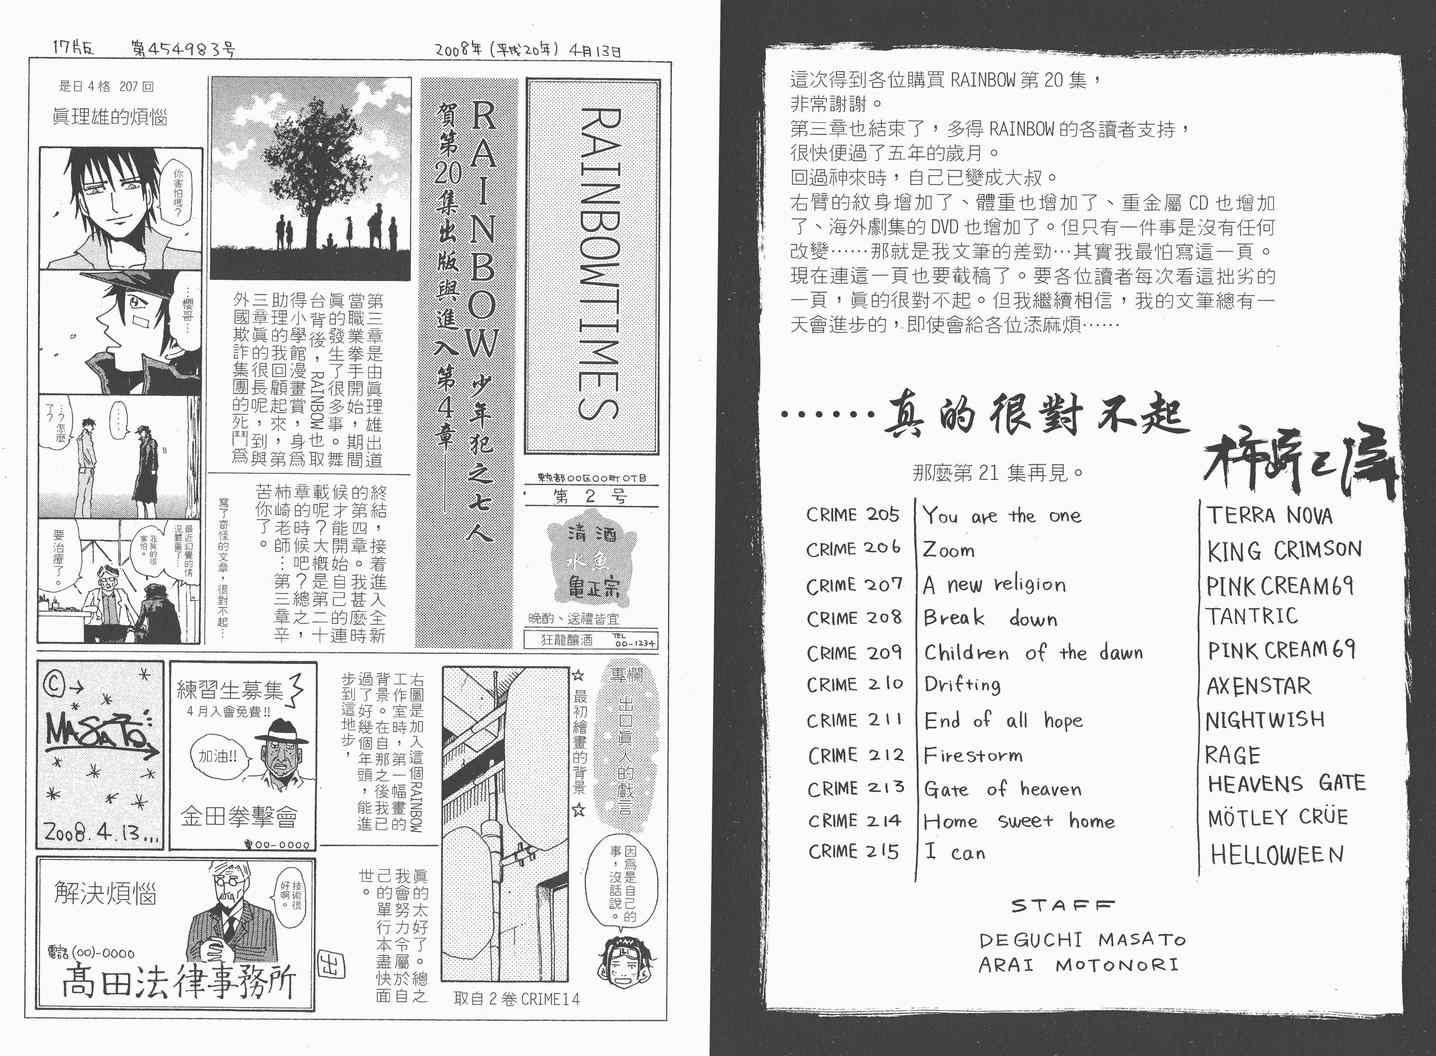 17版 第454983号 2008年(平成20年)4月13日
RAINBOWTIMES
東京都00区00町0丁目
第2号
清酒
水魚
亀正宗
晩酌、送禮皆宜
狂龍釀酒
TEL 00-1234
RAINBOW 少年犯之七人
賀第20集出版與進入第4章──
第三章是由眞理雄出道
當職業拳手開始,期間
眞的發生了很多事。舞
台背後,RAINBOW也取
得小學館漫畫賞,身爲
助理的我回顧起來,第
三章眞的很長呢,到與
外國欺詐集團的死鬥爲
終結,接着進入全新
的第四章。我甚麼時
候才能開始自己的連
載呢?大概是第二十
章的時候吧?總之,
柿崎老師…第三章辛
苦你了。
寫了奇怪的文章,很對不起…
是日4格 207回
眞理雄的煩惱
你害怕嗎?
…櫻哥…
……
…?怎麼了?
最近幻覺的情況嚴重了…
我眞的很害怕。
要治療了。
專欄
出口眞人的戲言
☆最初繪畫的背景☆
因爲是自己的
事,沒話說。
右圖是加入這個RAINBOW
工作室時,第一幅畫的
背景。在自那之後我已
過了好幾個年頭,能進
步到這地步,
眞的太好了。總之
我會努力令屬於自
己的單行本盡快面
世。
出
取自2卷CRIME14
C→
MASATO
2008.4.13...
練習生募集
4月入會免費!!
加油!!
金田拳擊會
電00-0000
解決煩惱
技術很好啊。
電話(00)-0000
髙田法律事務所
這次得到各位購買 RAINBOW 第 20 集,
非常謝謝。
第三章也結束了,多得 RAINBOW 的各讀者支持,
很快便過了五年的歲月。
回過神來時,自己已變成大叔。
右臂的紋身增加了、體重也增加了、重金屬 CD 也增加
了、海外劇集的 DVD 也增加了。但只有一件事是沒有任何
改變……那就是我文筆的差勁…其實我最怕寫這一頁。
現在連這一頁也要截稿了。要各位讀者每次看這拙劣的
一頁,眞的很對不起。但我繼續相信,我的文筆總有一
天會進步的,即使會給各位添麻煩……
……真的很對不起
那麼第 21 集再見。
CRIME 205 You are the one TERRA NOVA
CRIME 206 Zoom KING CRIMSON
CRIME 207 A new religion PINK CREAM69
CRIME 208 Break down TANTRIC
CRIME 209 Children of the dawn PINK CREAM 69
CRIME 210 Drifting AXENSTAR
CRIME 211 End of all hope NIGHTWISH
CRIME 212 Firestorm RAGE
CRIME 213 Gate of heaven HEAVENS GATE
CRIME 214 Home sweet home MÖTLEY CRÜE
CRIME 215 I can HELLOWEEN
STAFF
DEGUCHI MASATO
ARAI MOTONORI